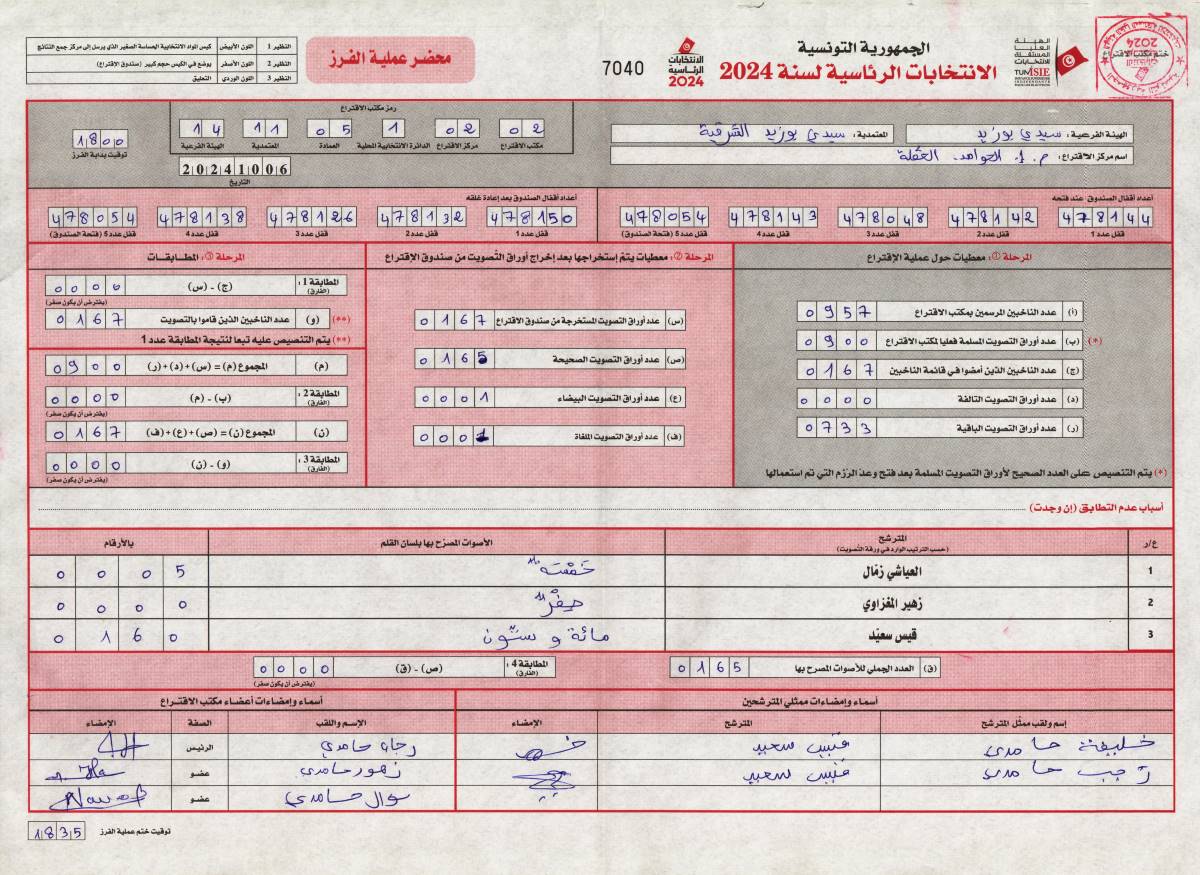 الجمهورية التونسية
الانتخابات الرئاسية لسنة 2024
الهيئة العليا المستقلة للانتخابات
TUNISIE
الانتخابات الرئاسية 2024
7040
محضر عملية الفرز
النظير 1 اللون الأبيض كيس المواد الانتخابية الحساسة الصغير الذي يرسل إلى مركز جمع النتائج
النظير 2 اللون الأصفر يوضع في الكيس حجم كبير (صندوق الإقتراع)
النظير 3 اللون الوردي التعليق
ختم مكتب الاقتراع
الهيئة الفرعية: سيدي بوزيد المعتمدية: سيدي بوزيد الشرقية
اسم مركز الاقتراع: م. إ. الحوامد. العقلة
رمز مكتب الاقتراع
02 02 1 05 11 14
مكتب الاقتراع مركز الاقتراع الدائرة الانتخابية المحلية العمادة المعتمدية الهيئة الفرعية
20241006
التاريخ
1800
توقيت بداية الفرز
أعداد أقفال الصندوق عند فتحه
478144 478142 478048 478143 478054
قفل عدد 1 قفل عدد 2 قفل عدد 3 قفل عدد 4 قفل عدد 5 (فتحة الصندوق)
أعداد أقفال الصندوق بعد إعادة غلقه
478150 478132 478126 478138 478054
قفل عدد 1 قفل عدد 2 قفل عدد 3 قفل عدد 4 قفل عدد 5 (فتحة الصندوق)
المرحلة ①: معطيات حول عملية الإقتراع
(أ) عدد الناخبين المرسمين بمكتب الاقتراع 0957
(*) (ب) عدد أوراق التصويت المسلمة فعليا لمكتب الاقتراع 0900
(ج) عدد الناخبين الذين أمضوا في قائمة الناخبين 0167
(د) عدد أوراق التصويت التالفة 0000
(ر) عدد أوراق التصويت الباقية 0733
(*) يتم التنصيص على العدد الصحيح لأوراق التصويت المسلمة بعد فتح وعد الرزم التي تم استعمالها
المرحلة ②: معطيات يتمّ إستخراجها بعد إخراج أوراق التصويت من صندوق الإقتراع
(س) عدد أوراق التصويت المستخرجة من صندوق الاقتراع 0167
(ص) عدد أوراق التصويت الصحيحة 0165
(ع) عدد أوراق التصويت البيضاء 0001
(ف) عدد أوراق التصويت الملغاة 0001
المرحلة ③: المطابقات
المطابقة 1: (الفارق) (ج) - (س) 0000
(يفترض أن يكون صفر)
(**) (و) عدد الناخبين الذين قاموا بالتصويت 0167
(**) يتم التنصيص عليه تبعا لنتيجة المطابقة عدد 1
(م) المجموع (م) = (س)+(د)+(ر) 0900
المطابقة 2: (الفارق) (ب) - (م) 0000
(يفترض أن يكون صفر)
(ن) المجموع (ن) = (ص)+(ع)+(ف) 0167
المطابقة 3: (الفارق) (و) - (ن) 0000
(يفترض أن يكون صفر)
أسباب عدم التطابق (إن وجدت)
ع/ر المترشح الأصوات المصرّح بها بلسان القلم بالأرقام
(حسب الترتيب الوارد في ورقة التصويت)
1 العياشي زمّال خمسة 0005
2 زهير المغزاوي صفر 0000
3 قيس سعيّد مائة و ستون 0160
(ق) العدد الجملي للأصوات المصرح بها 0165
المطابقة 4: (الفارق) (ص) - (ق) 0000
(يفترض أن يكون صفر)
أسماء وإمضاءات ممثلي المترشحين
إسم ولقب ممثّل المترشح المترشح الإمضاء
خليفة حامدي قيس سعيد
رجب حامدي قيس سعيد
أسماء وإمضاءات أعضاء مكتب الاقتراع
الإسم واللقب الصفة الإمضاء
رجاء حامدي الرئيس
زهور حامدي عضو
نوال حامدي عضو
توقيت ختم عملية الفرز 1835